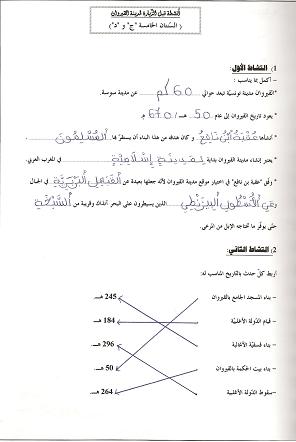 أنشطة قبل الزيارة لمدينة القيروان
( السنتان الخامسة "ج" و "د" )
1/ النشاط الأول:
– أكمل بما يناسب :
*القيروان مدينة تونسيّة تبعد حوالي 60 كم عن مدينة سوسة.
* يعود تاريخ القيروان إلى عام 50 هـ / 670 م.
* أنشأها عقبة ابن نافع و كان هدفه من هذا البناء أن يستقرّ بها المسلمون
* يعتبر إنشاء مدينة القيروان بداية لمدينة إسلامية في المغرب العربي.
* وفّق "عقبة بن نافع" في اختيار موقع مدينة القيروان لأنه جعلها بعيدة عن القبائل البربرية في الجبال
وعن الأسطول البيزنطي الذين يسيطرون على البحر آنذاك وقريبة من السبخة
حتّى يوفّر ما تحتاجه الإبل من المرعى.
2/ النشاط الثاني:
أربط كلّ حدث بالتاريخ المناسب له:
– بناء المسجد الجامع بالقيروان 245 هـ
– قيام الدّولة الأغلبيّة 184 هـ
– بناء فسقيّة الأغالبة 296 هـ
– بناء بيت الحكمة بالقيروان 50 هـ
– سقوط الدّولة الأغلبية 264 هـ